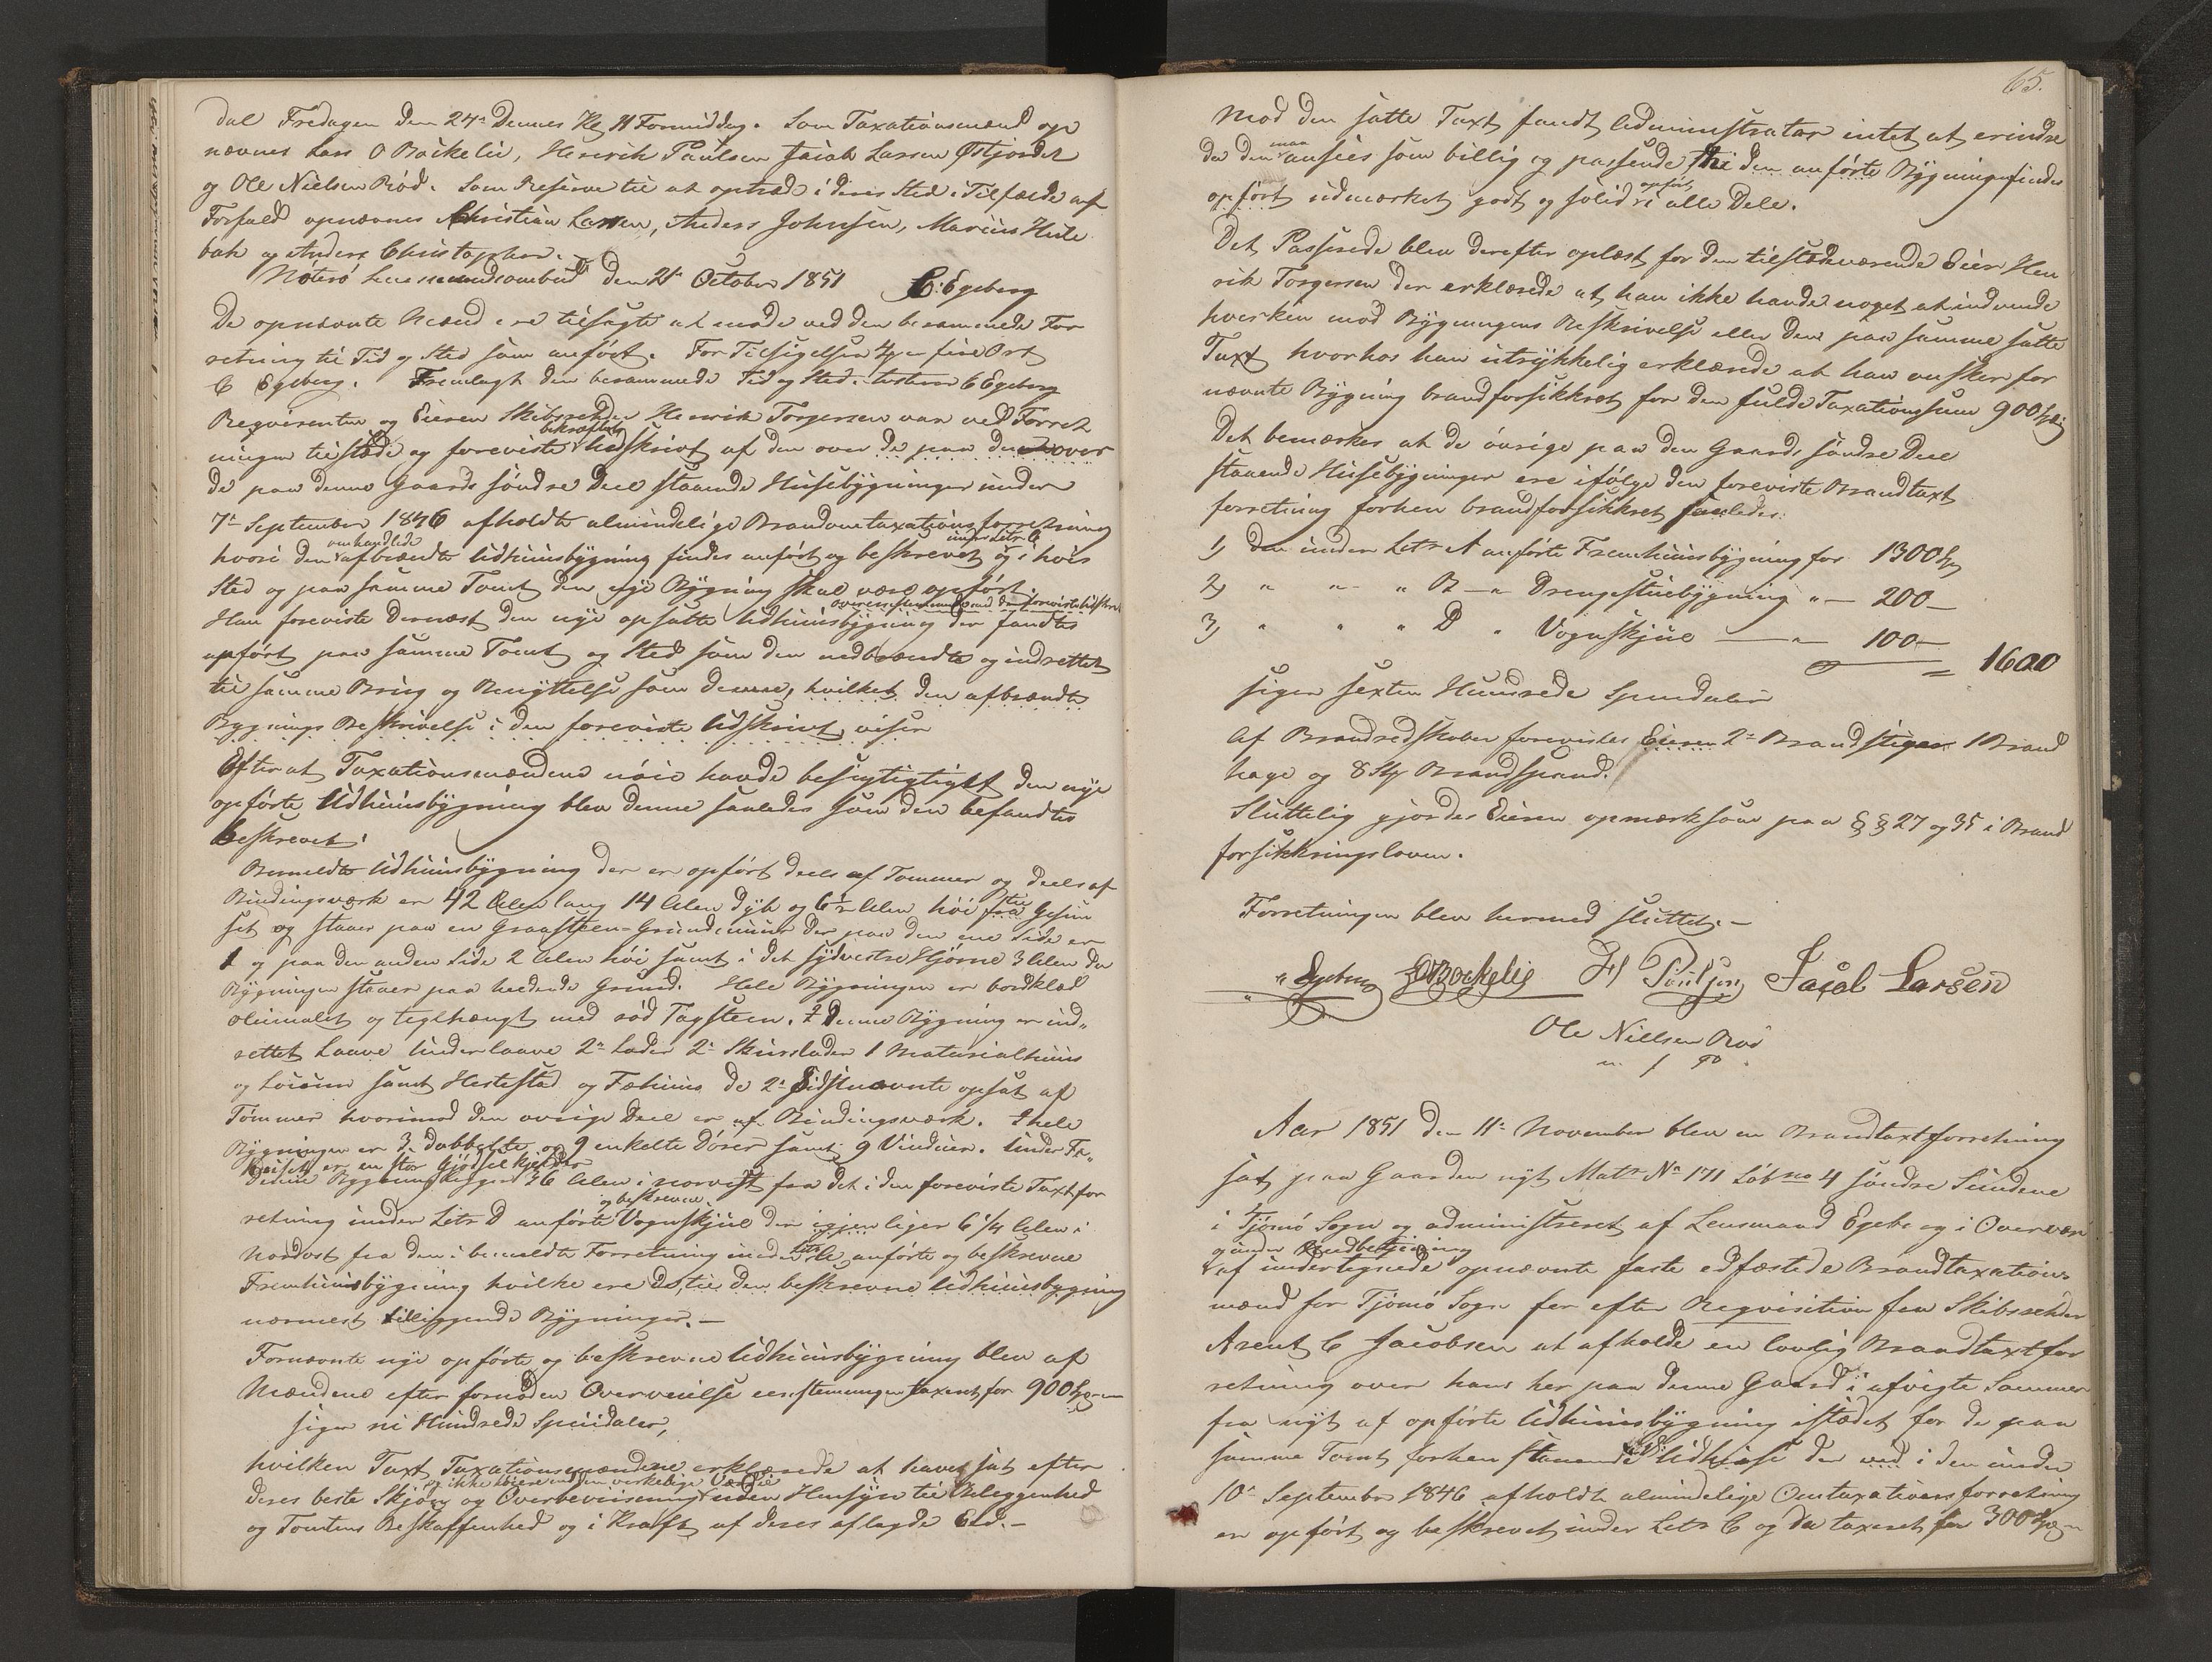 dal Fredagen den 24de Dennes Kl 11 Formiddag. Som Taxationsmænd op
nævnes Lars O Bøikelie, Henrik Paulsen Jacob Larsen Østjordet
og Ole Nielsen Rød. Som Reserve til at optræde i deres Sted i Tilfælde af
Forfald opnævnes Christian Larsen, Anders Johnsen, Marius Heste
bak og Anders Christopher.
Nøterø Lensmandsombud den 21 October 1851 C: Egeberg
De opnævnte Mænd ere tilsagte at møde ved den berammede For
retning til Tid og Sted som anført. For Tilsigelsen 4 er fire Ort
C Egeberg. Fremlagt den berammede Tid og Sted. C Egeberg
Reqvirenten og Eieren Skibsreder Henrik Torgersen var ved Forret
ningen tilstæde og foreviste bekræftet Udskrivt af den over de paa den over
de paa denne Gaards søndre Deel staaende Huusebygninger under
7de September 1846 afholdte almindelige Brandomtaxationsforretning
hvori den omhandlede afbrændte Udhuusbygning findes anført og beskrevet under Litr. C og i hvis
Sted og paa samme Tomt den nye Bygning skal være opført.
Han foreviste dernæst den nye opsatte Udhuusbygning der fandtes overensstemmende med den foreviste Udskrivt
opført paa samme Tomt og Sted som den nedbrændte og indrettet
til samme Brug og Benyttelse som denne, hvilket den afbrændte
Bygnings Beskrivelse i den foreviste Udskrivt viser
Efterat Taxationsmændene nøie havde besigtigtigtet den nye
opførte Udhuusbygning blev denne saaledes som den befandtes
beskrevet:
Bemeldte Udhuusbygning der er opført deels af Tømmer og deels af
Bindingsværk er 42 Alen lang 14 Alen dyb og 6½ Alen høi fra til Gesim
set og staaer paa en Graasteen-Grundmuur der paa den ene Side er
1 og paa den anden Side 2 Alen høi samt i det sydvestre Hjørne 3 Alen da
Bygningen staaer paa heldende Grund. Hele Bygningen er bordklæd
oliemalet og teglhængt med rød Tagsteen. I denne Bygning er ind„
rettet Laave Underlaave 2de Lader 2de Skurslader 1 Materialhuus
og samt Hestestald og Fæhuus de 2de Sidstnævnte opsat af
Tømmer hvorimod den øvrige Deel er af Bindingsværk. I hele
Bygningen er 3 dobbelte og 9 enkelte Dører samt 9 Vinduer. Under Fæ„
huset er en stor Gjødselkjelder
Denne Bygning ligger 36 Alen i norvest fra det i den foreviste Taxtfor
retning under Litr D anførte og beskrevne Vognskjul der igjen ligger 6 1/4 Alen i
Nordost fra den i bemeldte Forretning under Litr A anførte og beskrevne
Fremhuusbygning hvilke ere de, til den beskrevne Udhuusbygning
nærmest tilliggende Bygninger.—
Fornævnte nye opførte og beskrevne Udhuusbygning blev af
Mændene efter fornøden Overveielse eenstemmigen taxeret for 900 Spd
siger ni Hundrede Speciedaler,
hvilken Taxt Taxationsmændene erklærede at have sat efter
deres beste Skjøn og Overbeviisning og ikke høiere end den virkelige Værdie uden Hensyn til Beleggenhed
og Tomtens Beskaffenhed og i Kraft af deres aflagde Eed.—
65.
Mod den satte Taxt fandt Administrator intet at erindre
da den maa ansees som billig og passende thi den anførte Bygning findes
opført udmærket godt og solid opført i alle Dele.
Det Passerede blev derefter oplæst for den tilstedeværende Eier Hen
rik Torgersen der erklærede at han ikke havde noget at indvende
hverken mod Bygningens Beskrivelse eller den paa samme satte
Taxt hvorhos han udtrykkelig erklærede at han ønsker for
nævnte Bygning brandforsikkret for den fulde Taxationssum 900 Spd
Det bemærkes at de øvrige paa den Gaards søndre Deel
staaende Huusebygninger ere ifølge den foreviste Brandtaxt
forretning forhen brandforsikkret saaledes:
1) den under Litr A anførte Fremhuusbygning for 1300 Spd
2) " " " B — " Drengestuebygning " — 200 —
3) " " " D " Vognskjul — " — 100 —
= 1600
siger sexten Hundrede Speciedaler
Af Brandredskaber forevistes Eieren 2de Brandstiger 1 Brand
hage og 8 Stk Brandspand.
Sluttelig gjordes Eieren opmærksom paa §§ 27 og 35 i Brand
forsikkringsloven.
Forretningen blev hermed sluttet.—
C Egeberg L O Bøckelie H Poulsen Jacob Larsen
Ole Nielsen Rød
m. f P.
Aar 1851 den 11te November blev en Brandtaxtforretning
sat paa Gaarden nyt Matr No 171 Løbno 4 søndre Sundene
i Tjømø Sogn og administreret af Lensmand Egeberg i Overvær
og under Medbetjening
af undertegnede opnævnte faste edfæstede Brandtaxations
mænd for Tjømø Sogn for efter Reqvisition fra Skibsreder
Arent C Jacobsen at afholde en lovlig Brandtaxtfor
retning over hans her paa denne Gaard i afvigte Sommer
fra nyt af opførte Udhuusbygning istædet for de paa
samme Tomt forhen staaende Udhuse der ved i den under
10de September 1846 afholdte almindelige Omtaxationsforretning
er opført og beskrevet under Litr C og da taxeret for 300 Spd